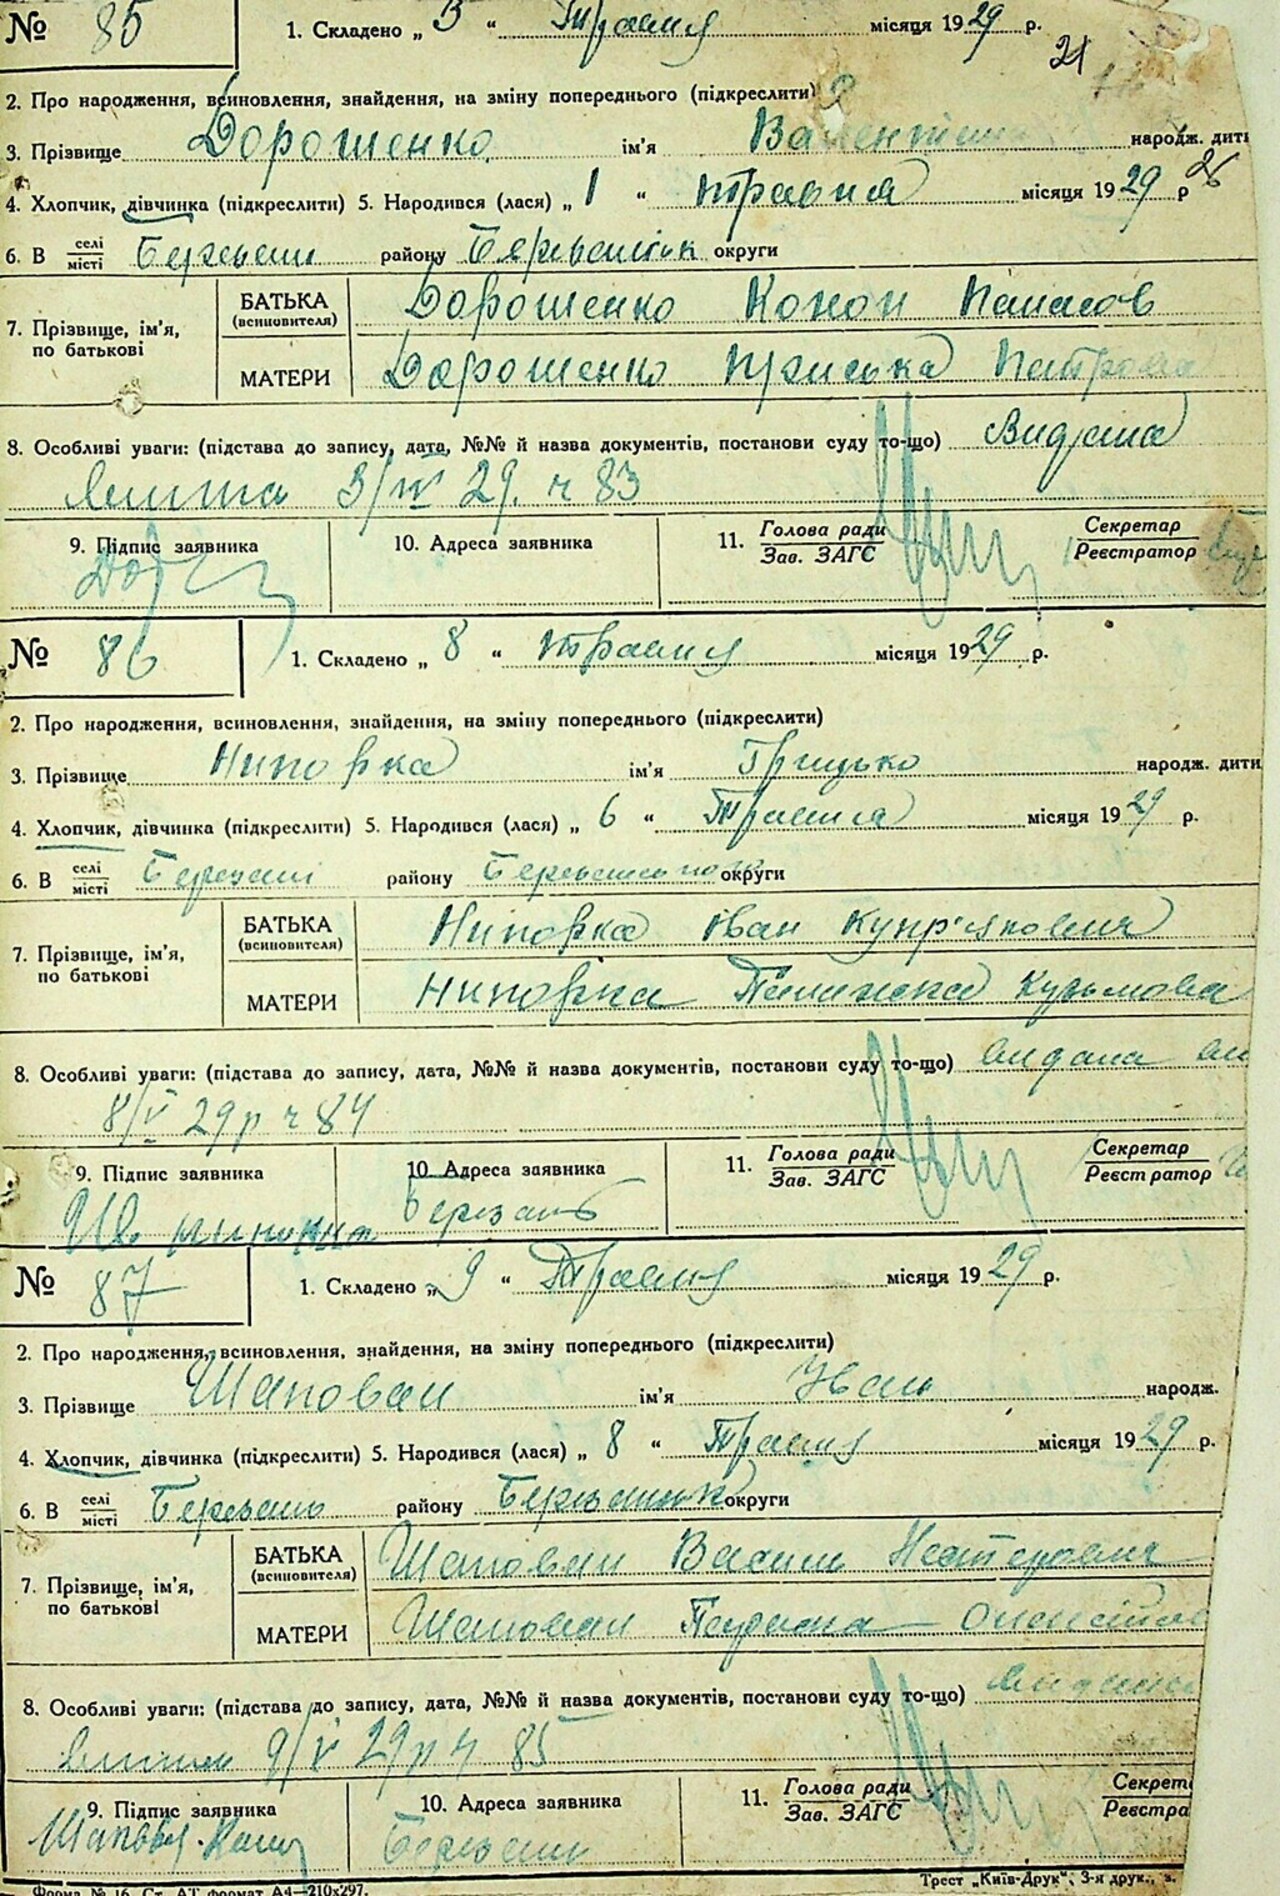 № 85 1. Складено „ 3 “ Травня місяця 1929 р.
21
2. Про народження, всиновлення, знайдення, на зміну попереднього (підкреслити)
3. Прізвище Дорошенко ім'я народж. дити
4. Хлопчик, дівчинка (підкреслити) 5. Народився (лася) „ 1 “ травня місяця 1929 р
6. В селі місті Березані району округи
7. Прізвище, ім'я, по батькові
БАТЬКА (всиновителя) Дорошенко Конон Панасов
МАТЕРИ Дорошенко Пріська Петрова
8. Особливі уваги: (підстава до запису, дата, №№ й назва документів, постанови суду то-що) Видана
3/V 29. ч 83
9. Підпис заявника 10. Адреса заявника 11. Голова ради Зав. ЗАГС Секретар Реєстратор
№ 86 1. Складено „ 8 “ Травня місяця 1929 р.
2. Про народження, всиновлення, знайдення, на зміну попереднього (підкреслити)
3. Прізвище Нипорка ім'я Грицько народж. дити
4. Хлопчик, дівчинка (підкреслити) 5. Народився (лася) „ 6 “ Травня місяця 1929 р.
6. В селі місті Березані району округи
7. Прізвище, ім'я, по батькові
БАТЬКА (всиновителя) Нипорка Іван Купр'янович
МАТЕРИ Нипорка Кузьмова
8. Особливі уваги: (підстава до запису, дата, №№ й назва документів, постанови суду то-що) видана
8/V 29 р ч 84
9. Підпис заявника 10. Адреса заявника 11. Голова ради Зав. ЗАГС Секретар Реєстратор
Березань
№ 87 1. Складено „ 9 “ Травня місяця 1929 р.
2. Про народження, всиновлення, знайдення, на зміну попереднього (підкреслити)
3. Прізвище Шаповал ім'я Іван народж.
4. Хлопчик, дівчинка (підкреслити) 5. Народився (лася) „ 8 “ Травня місяця 1929 р.
6. В селі місті Березань району округи
7. Прізвище, ім'я, по батькові
БАТЬКА (всиновителя) Шаповал Василь Нестерович
МАТЕРИ Шаповал
8. Особливі уваги: (підстава до запису, дата, №№ й назва документів, постанови суду то-що) видана
9/V 29 р ч 85
9. Підпис заявника 10. Адреса заявника 11. Голова ради Зав. ЗАГС Секрет Реєстра
Березань
Форма № 16. Ст. АТ формат А4—210х297. Трест „Київ-Друк“, 3-я друк., з.